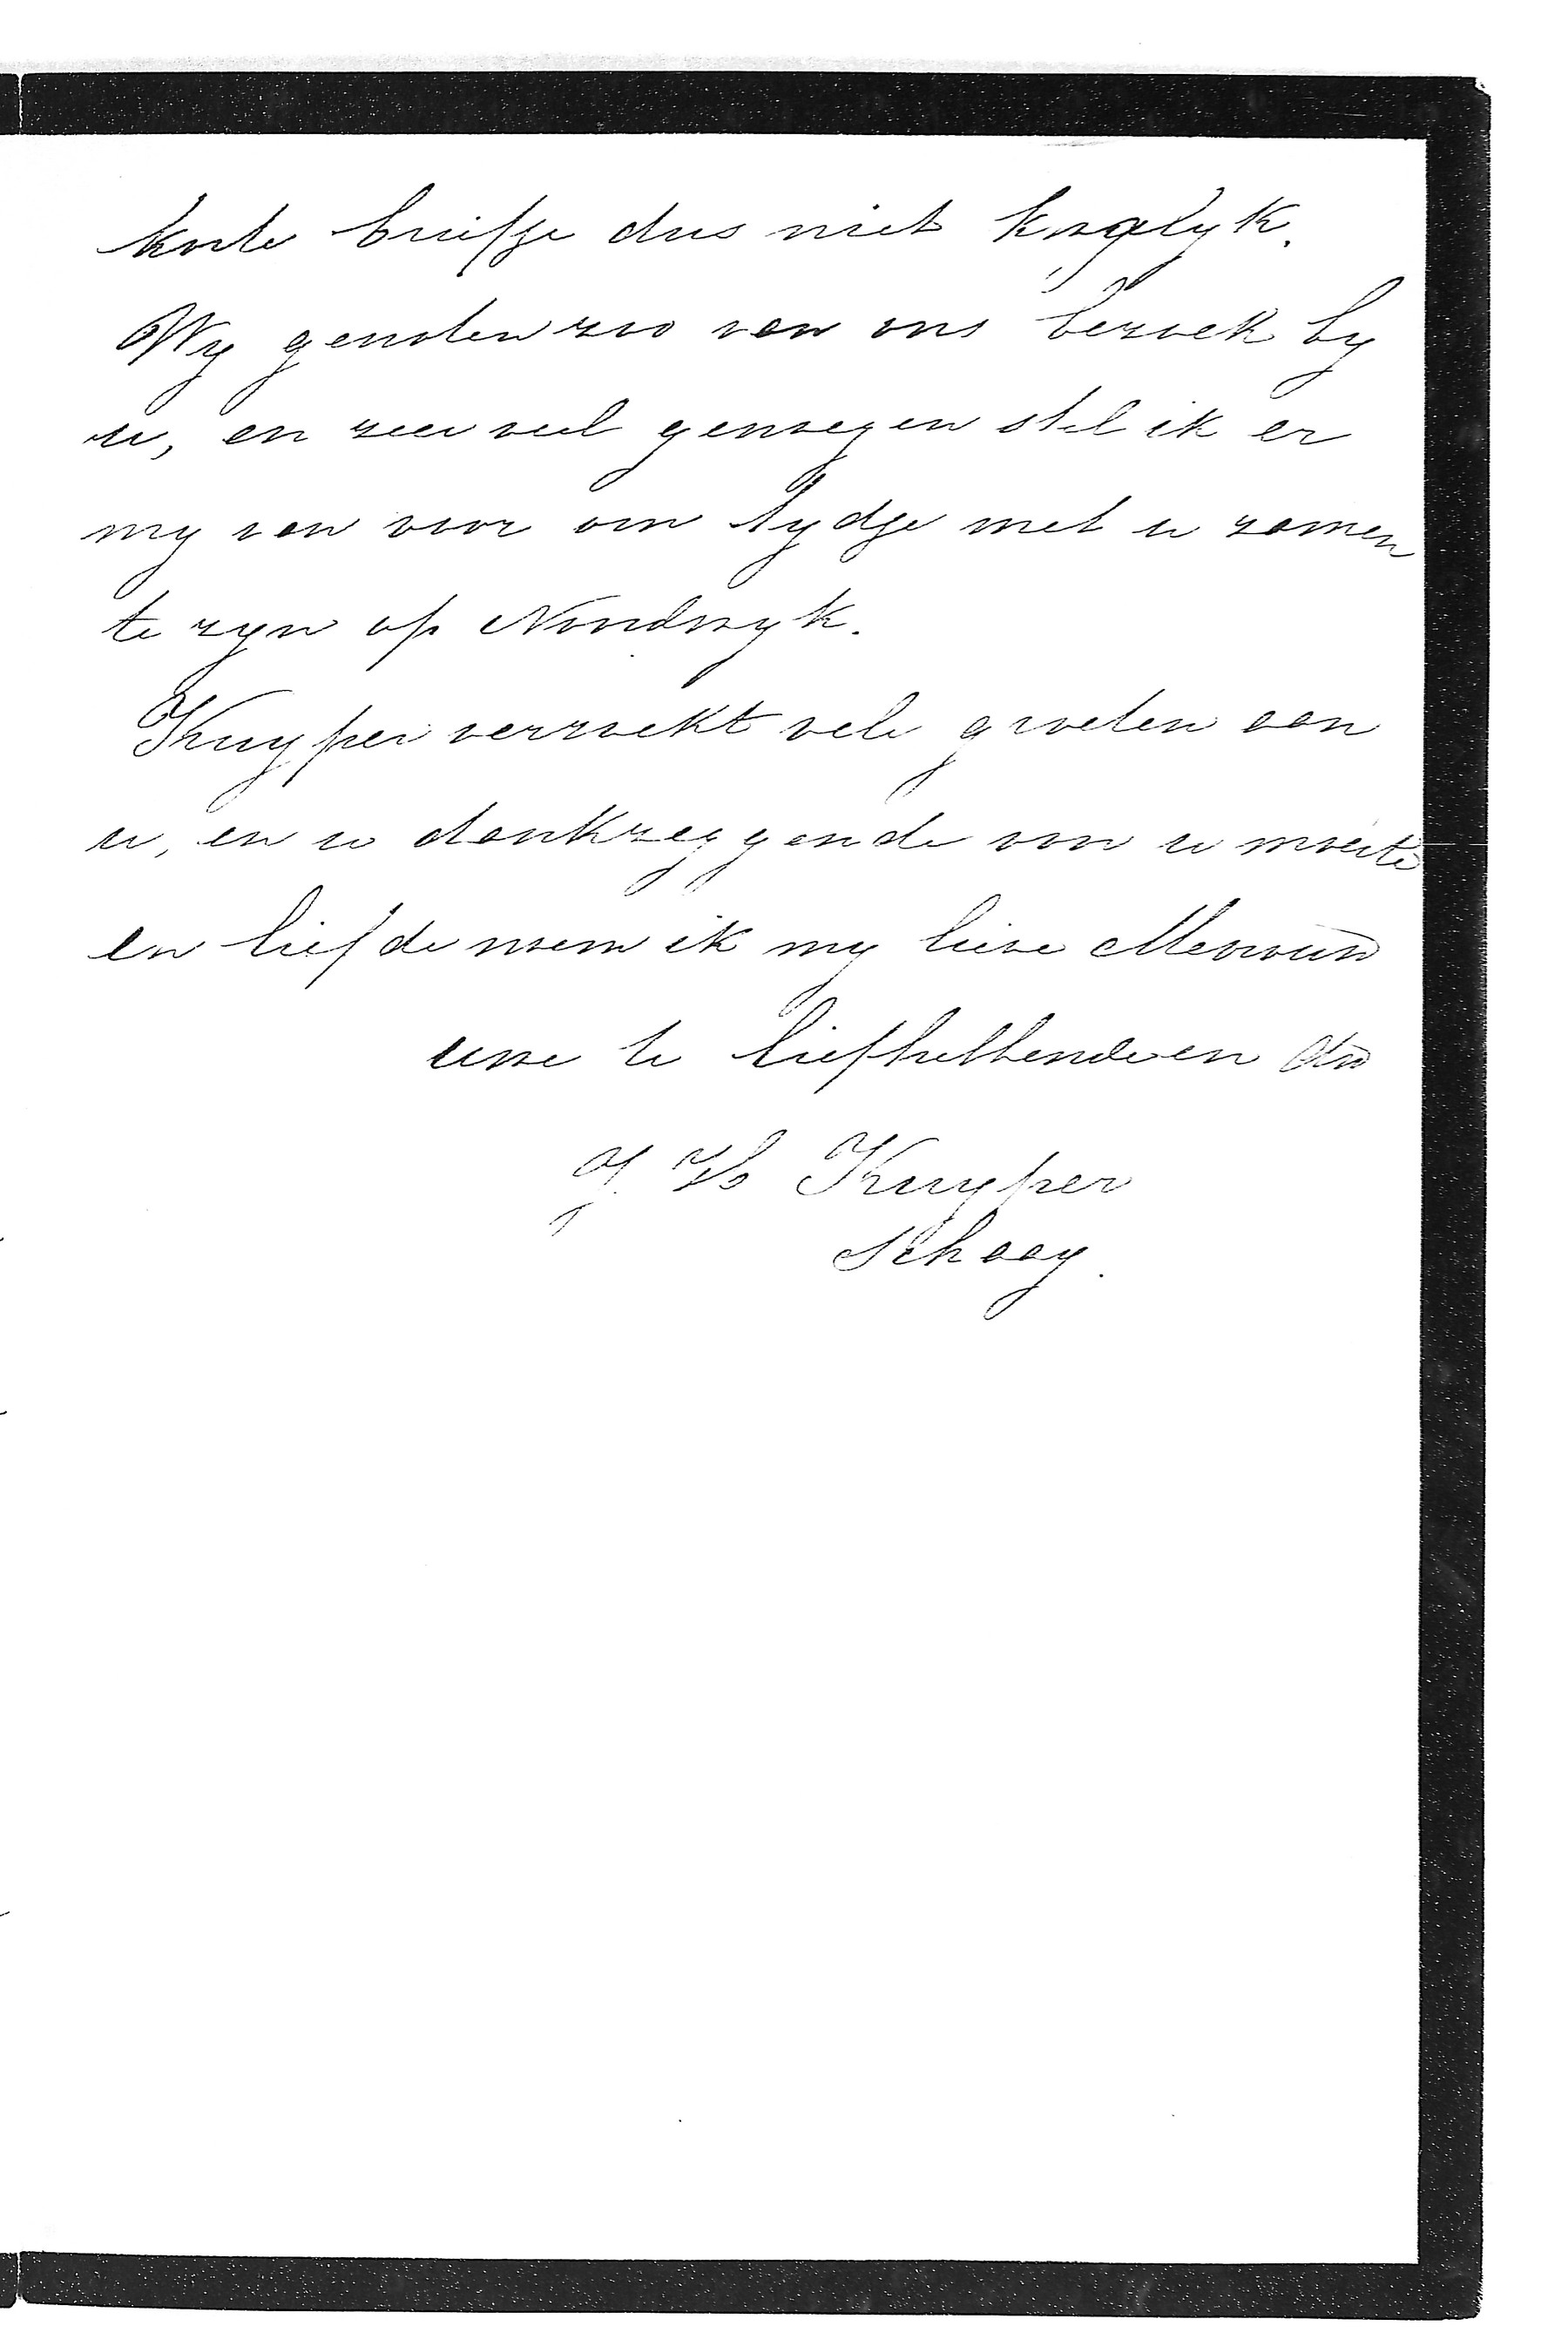 korte briefje dus niet kwalyk.
Wy genoten zoo van ons bezoek by
u, en zeer veel genoegen stel ik er
my van voor om tydje met u zamen
te zyn op Noordwyk.
Kuyper verzoekt vele groeten aan
u, en u dankzeggende voor u moeite
en liefde noem ik my lieve Mevrouw
uwe te liefhebbende en
J. H. Kuyper
Schaay.